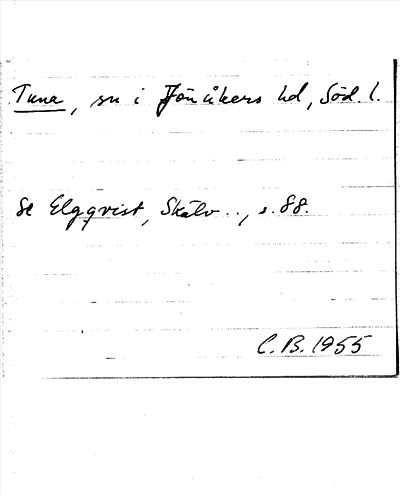 Tuna, sn i Jönåkers hd, Söd. l.
Se Elgqvist, Skälv.., s. 88.
C. B. 1955